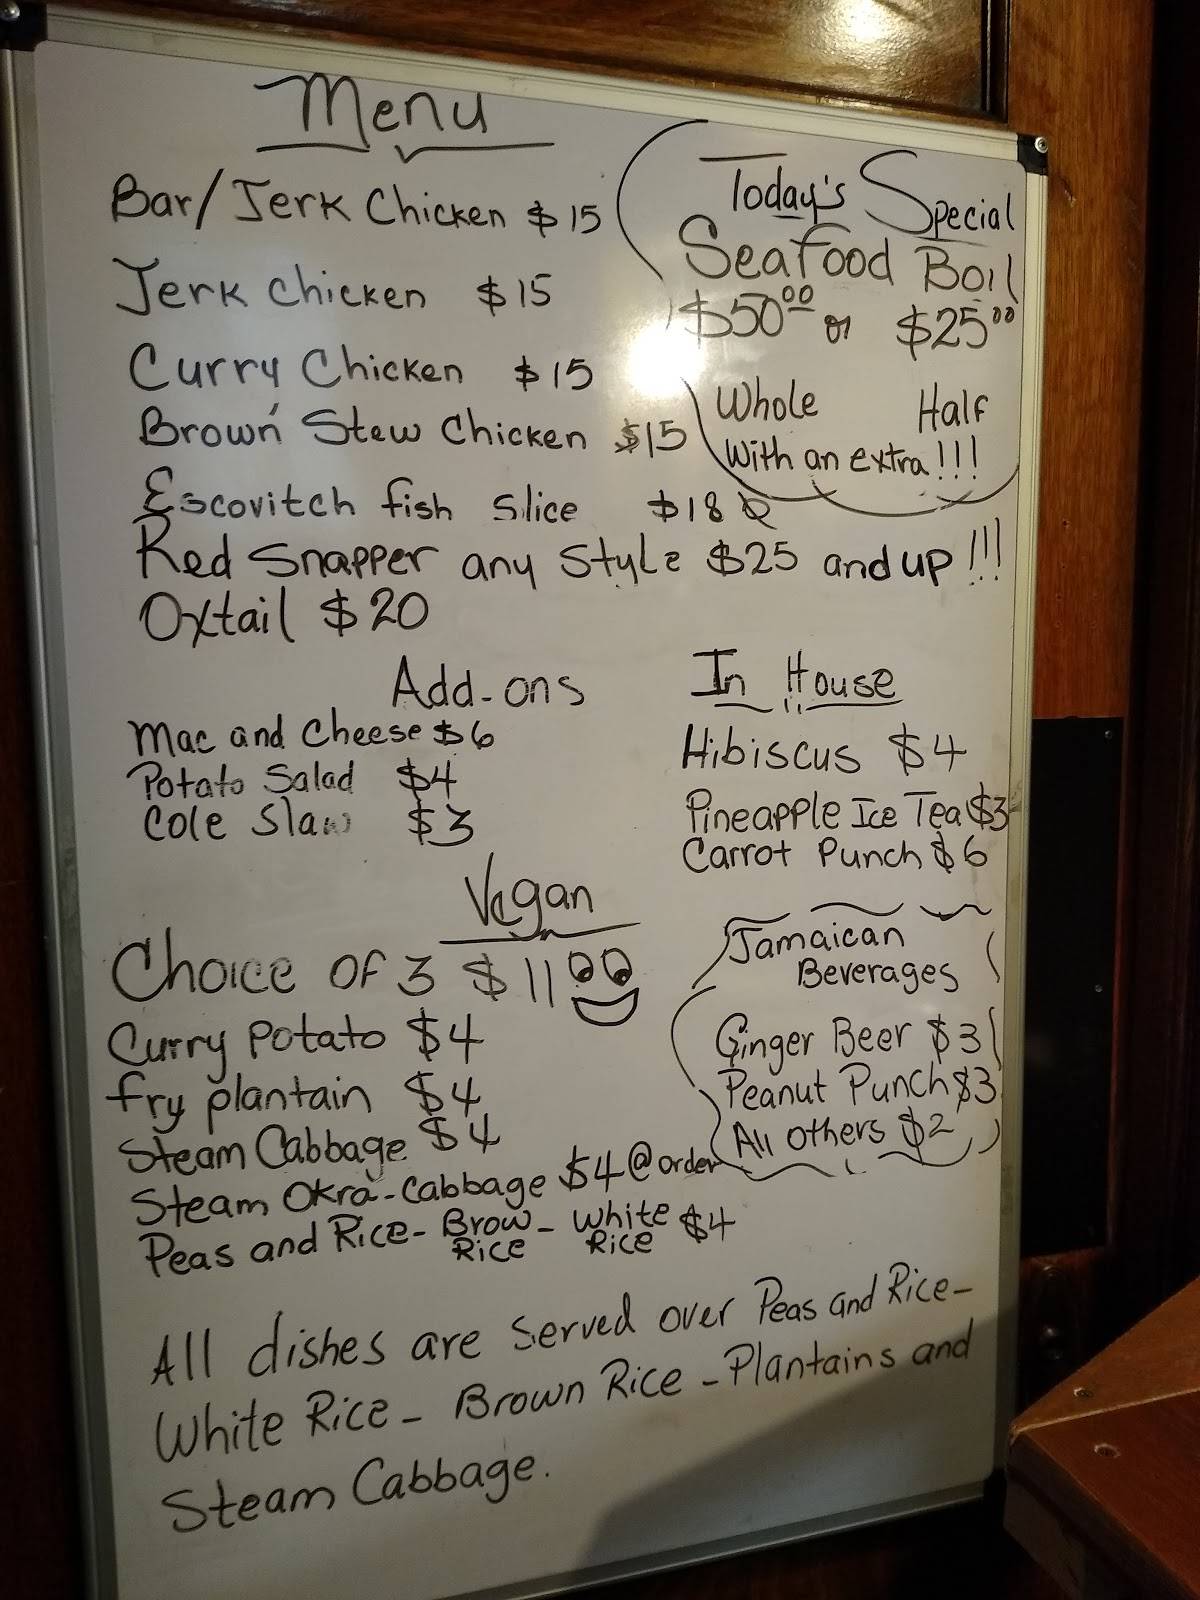 Menu
Bar/Jerk Chicken $15
Jerk Chicken $15
Curry Chicken $15
Brown Stew Chicken $15
Escovitch fish Slice $18
Red Snapper any Style $25 and up!!!
Oxtail $20
Today's Special
Seafood Boil
$50.00 or $25.00
Whole Half
With an extra!!!
Add-ons
Mac and Cheese $6
Potato Salad $4
Cole Slaw $3
In House
Hibiscus $4
Pineapple Ice Tea $3
Carrot Punch $6
Vegan
Choice Of 3 $11
Curry Potato $4
fry plantain $4
Steam Cabbage $4
Steam Okra-Cabbage $4 @ order
Peas and Rice- Brow Rice - White Rice $4
Jamaican
Beverages
Ginger Beer $3
Peanut Punch $3
All others $2
All dishes are served over Peas and Rice-
White Rice - Brown Rice - Plantains and
Steam Cabbage.